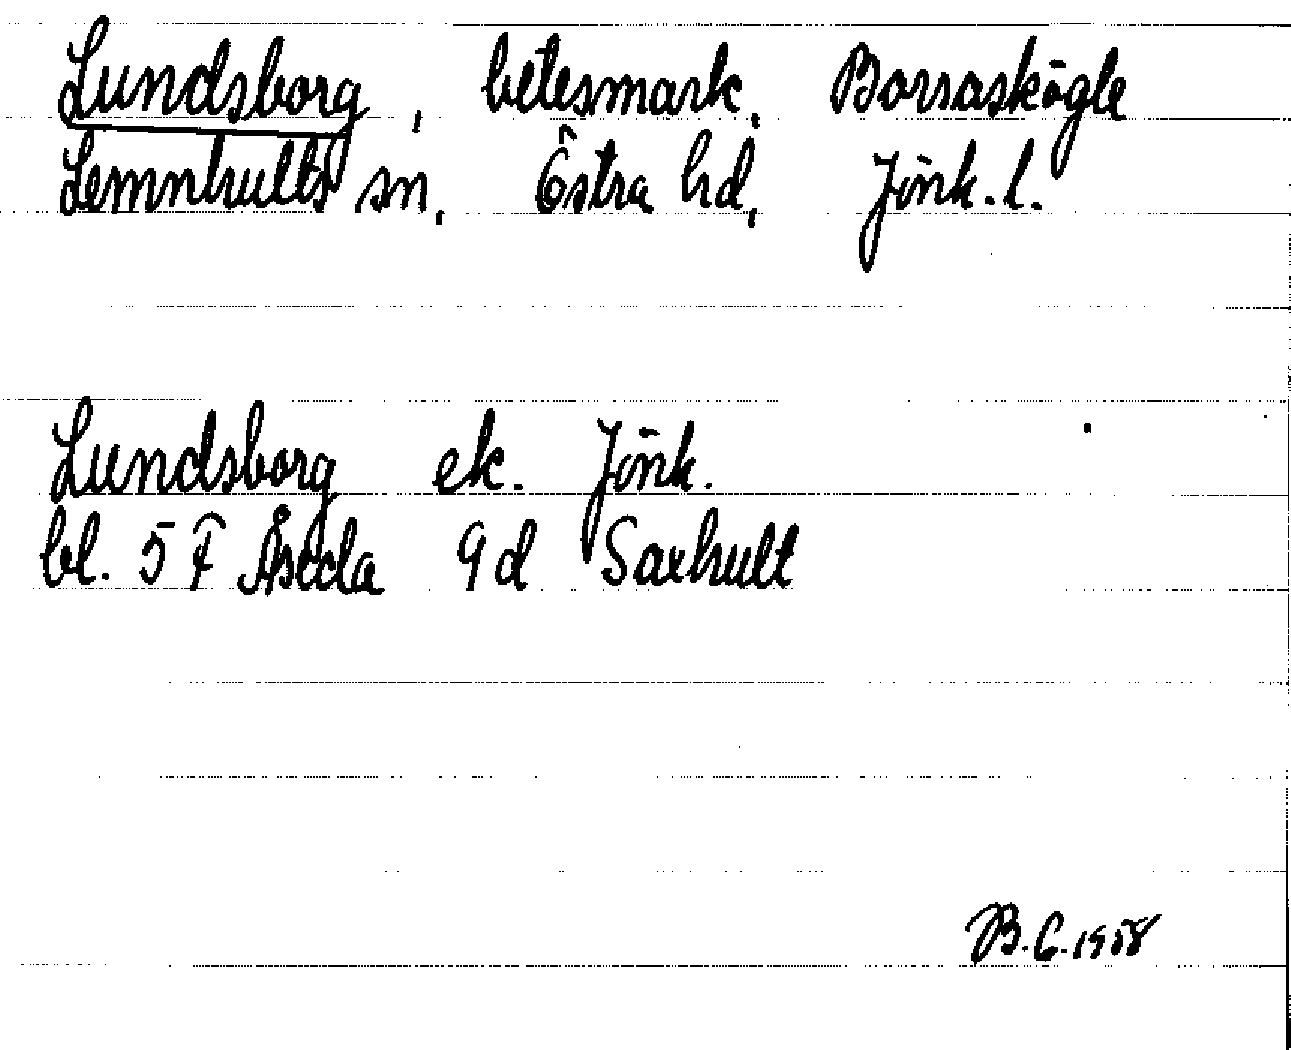 Lundsborg, betesmark, Borraskögle
Lemnhults sn, Östra hd, Jönk. l.
Lundsborg ek. Jönk.
bl. 5 F Åseda 9d Saxhult
B.C. 1958